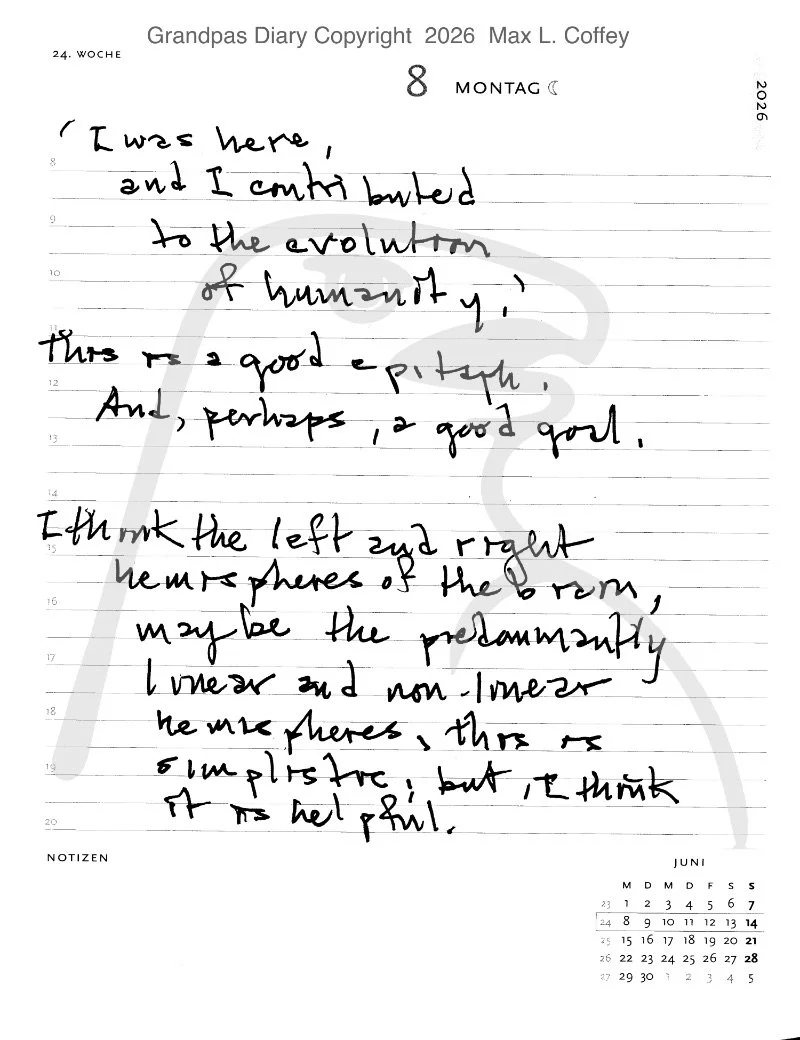 Grandpas Diary Copyright 2026 Max L. Coffey
24. WOCHE
8 MONTAG
2026
'I was here,
8
and I contributed
9
to the evolution
10
of humanity.'
11
This is a good epitaph.
12
And, perhaps, a good goal.
13
14
I think the left and right
15
hemispheres of the brain,
16
maybe the predominantly
17
linear and non-linear
18
hemispheres, this is
19
simplistic, but, I think
it is helpful.
20
NOTIZEN
JUNI
M D M D F S S
23 1 2 3 4 5 6 7
24 8 9 10 11 12 13 14
25 15 16 17 18 19 20 21
26 22 23 24 25 26 27 28
27 29 30 1 2 3 4 5